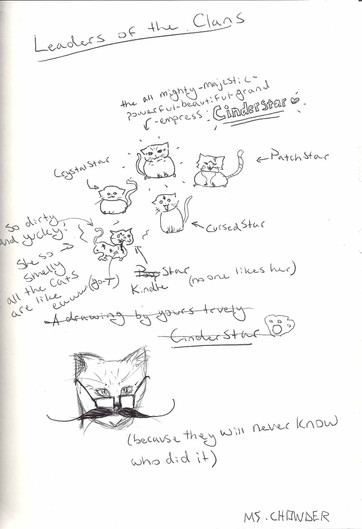 Leaders of the Clans
the all mighty-majestic-
powerful-beautiful-grand
-empress: CinderStar
CrystalStar
PatchStar
CursedStar
So dirty
and yucky!
She so
smelly
all the cats
are like
ewww
Star
Kindle
(no one likes her)
A drawing by yours truely
CinderStar
(because they will never know
who did it)
MS. CHOWDER